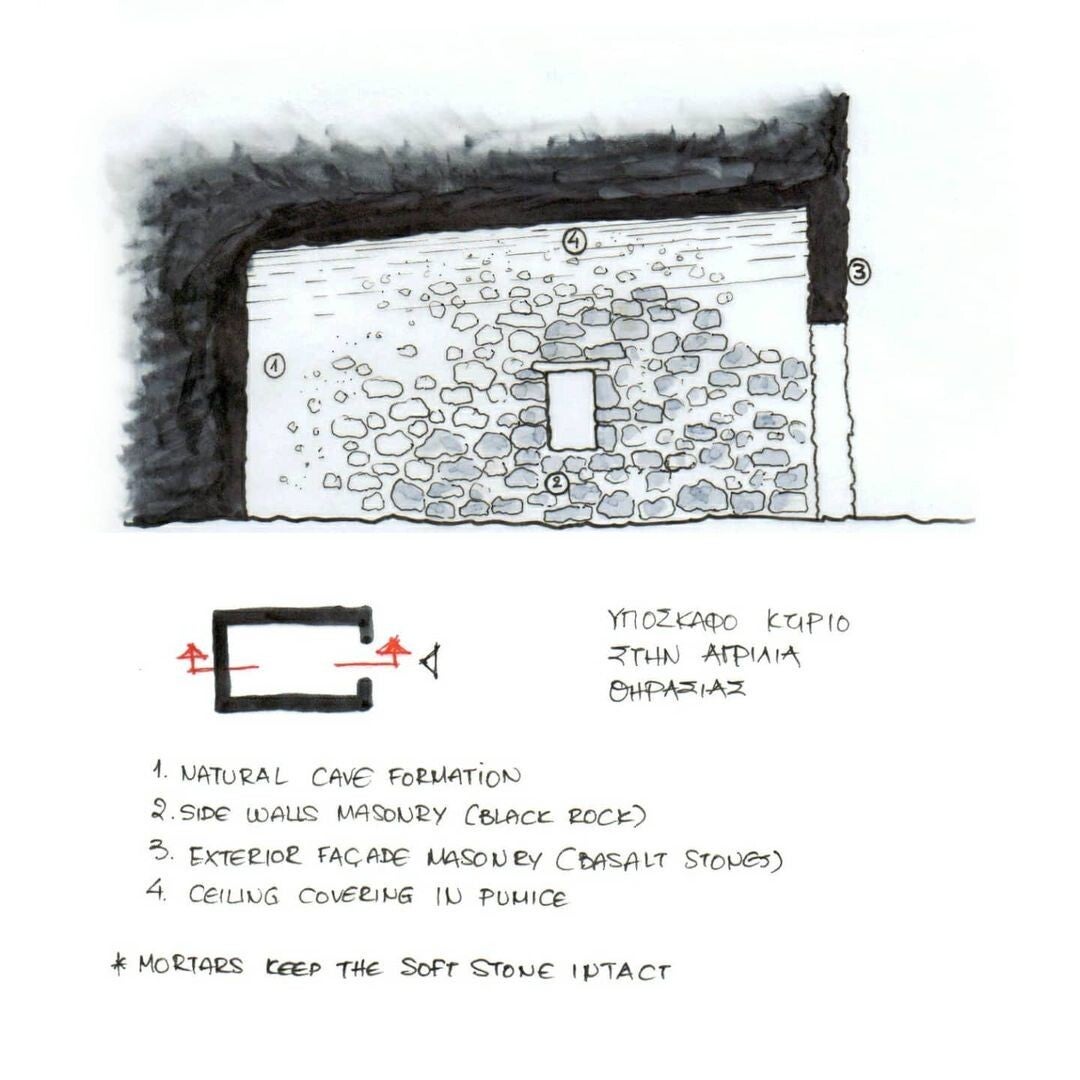 4
3
1
2
ΥΠΟΣΚΑΦΟ ΚΤΙΡΙΟ
ΣΤΗΝ ΑΓΡΙΛΙΑ
ΘΗΡΑΣΙΑΣ
1. NATURAL CAVE FORMATION
2. SIDE WALLS MASONRY (BLACK ROCK)
3. EXTERIOR FAÇADE MASONRY (BASALT STONES)
4. CEILING COVERING IN PUMICE
* MORTARS KEEP THE SOFT STONE INTACT